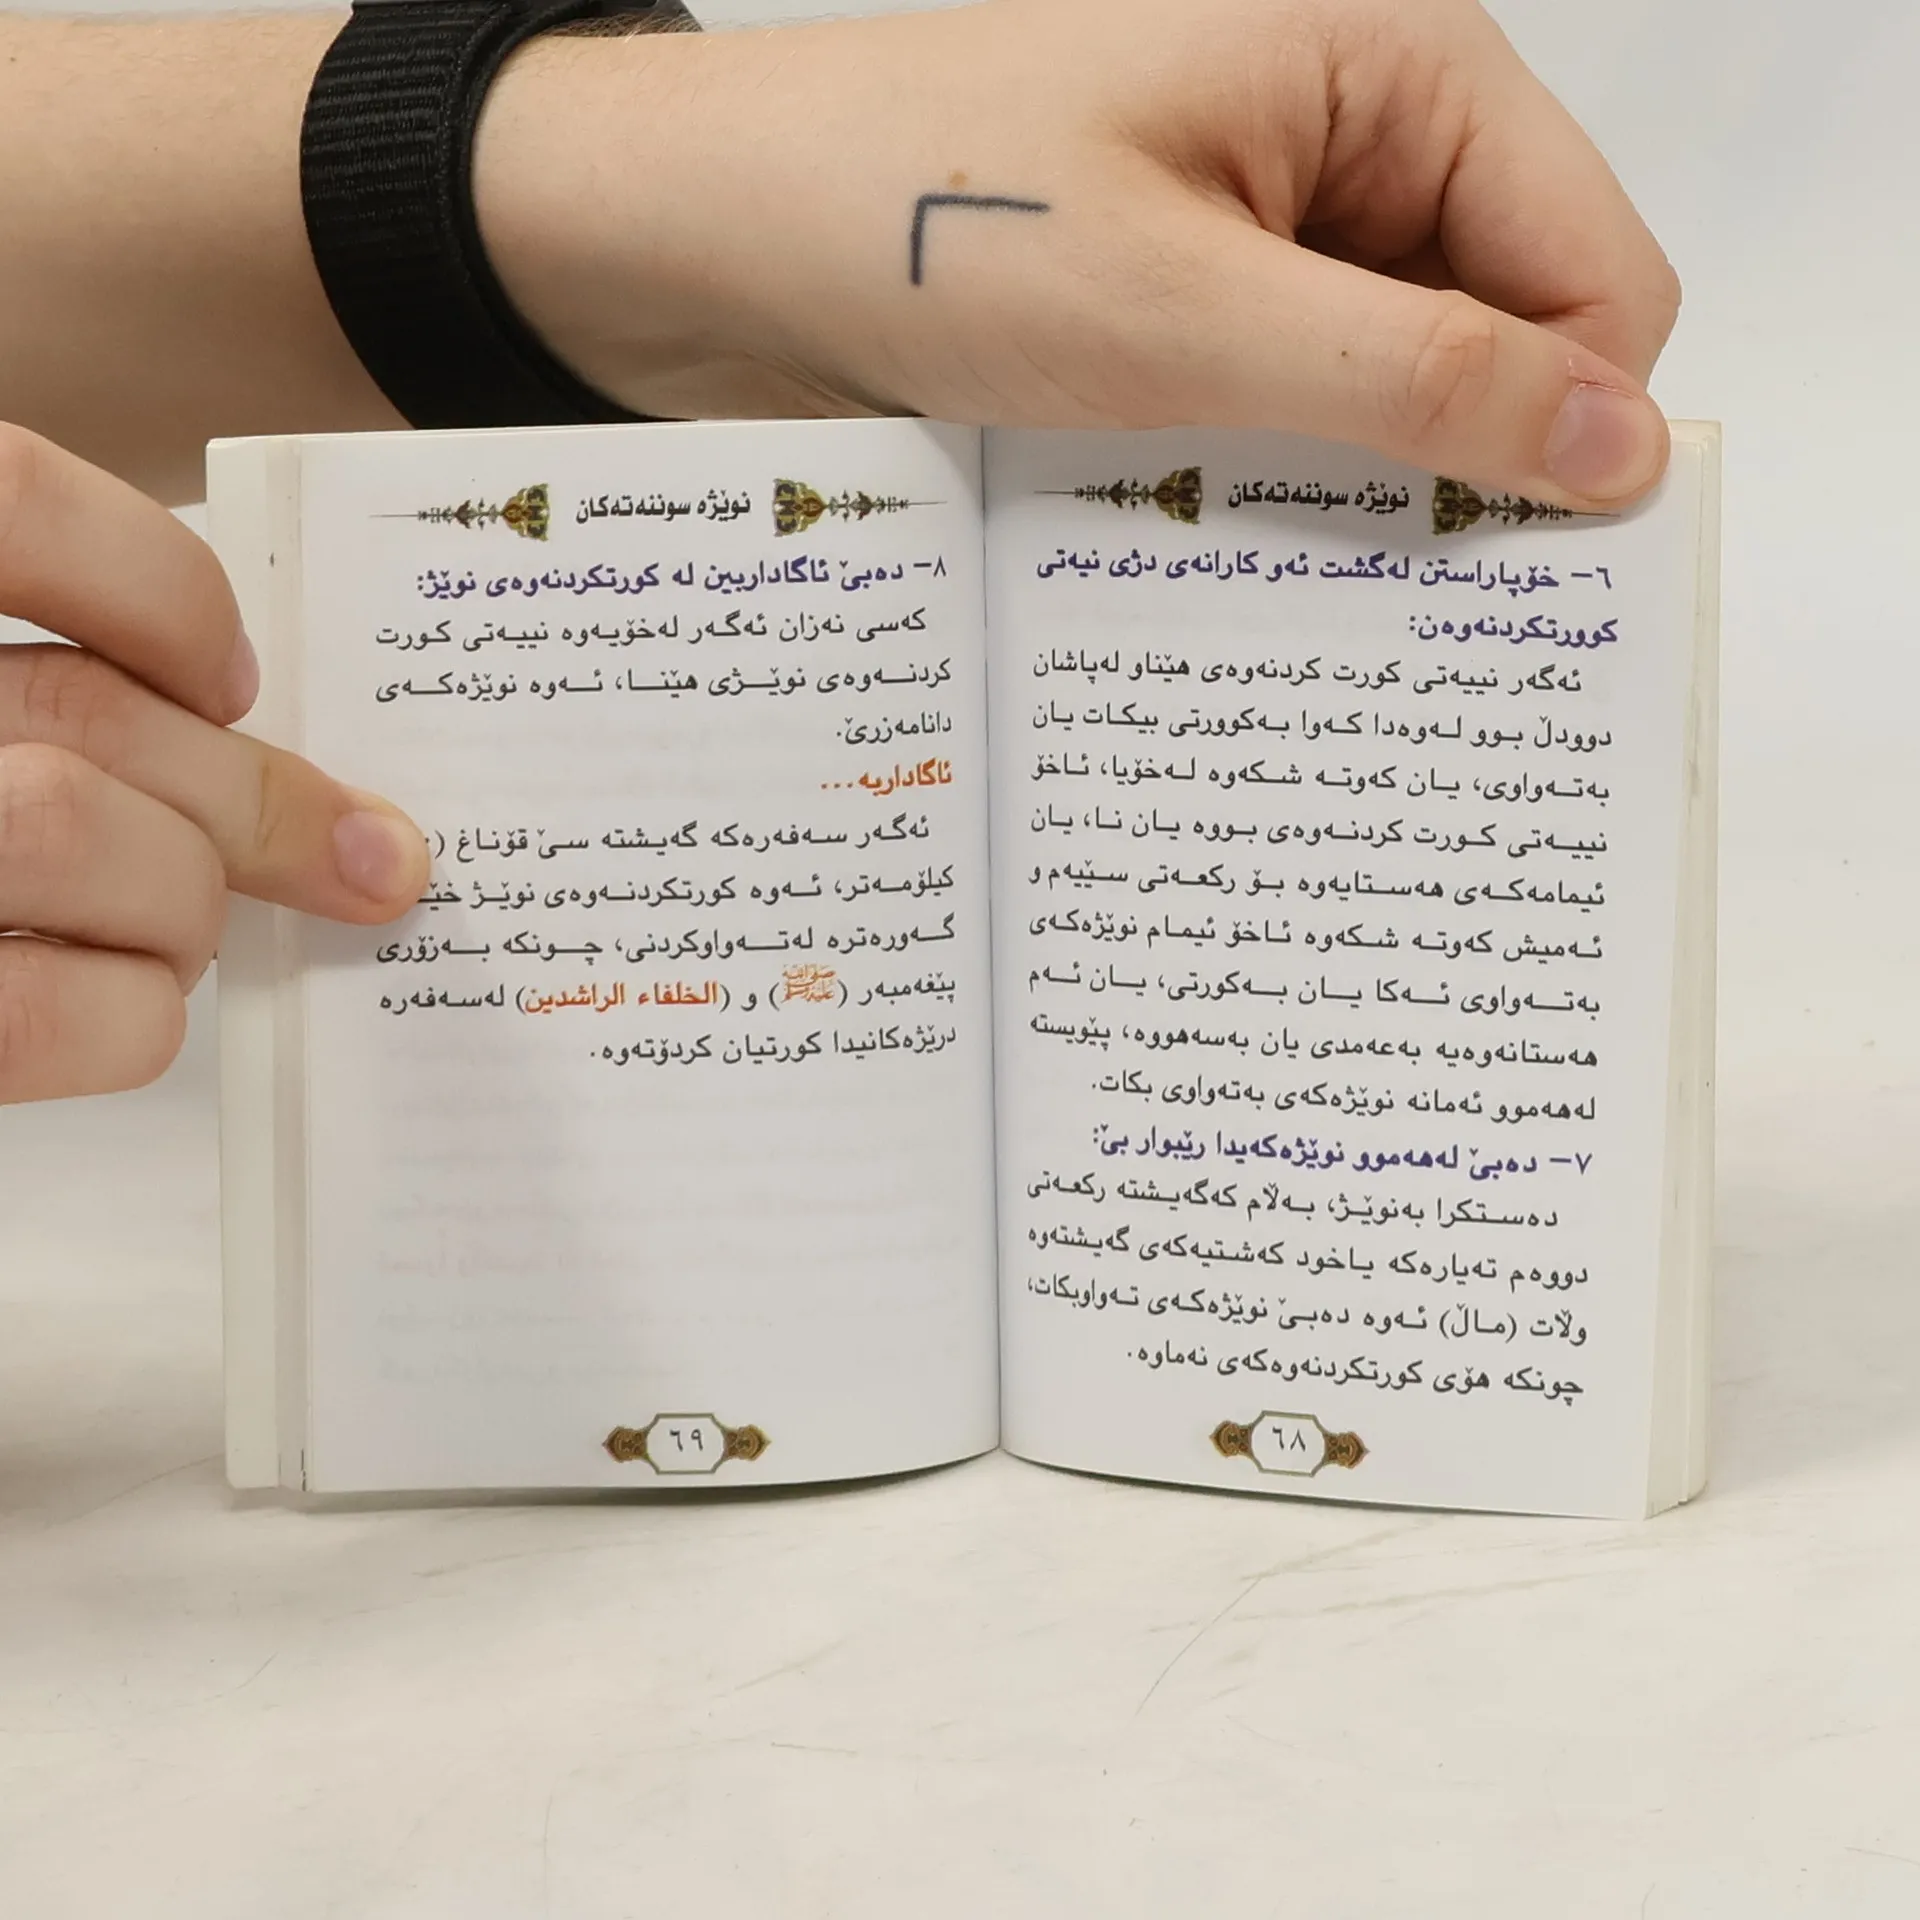 نوێژه سوننەتەکان
٦– خۆپاراستن لەگشت ئەو کارانەی دژی نیەتی
کوورتکردنەوەن:
ئەگەر نییەتی کورت کردنەوەی هێناو لەپاشان
دوودڵ بوو لەوەدا کەوا بەکوورتی بیکات یان
بەتەواوی، یان کەوتە شکەوە لەخۆیا، ئاخۆ
نییەتی کورت کردنەوەی بووە یان نا، یان
ئیمامەکەی هەستایەوە بۆ رکعەتی سێیەم و
ئەمیش کەوتە شکەوە ئاخۆ ئیمام نوێژەکەی
بەتەواوی ئەکا یان بەکورتی، یان ئەم
هەستانەوەیە بەعەمدی یان بەسەهووە، پێویستە
لەهەموو ئەمانە نوێژەکەی بەتەواوی بکات.
٧– دەبێ لەهەموو نوێژەکەیدا رێبوار بێ:
دەستکرا بەنوێژ، بەڵام کەگەیشتە رکعەتی
دووەم تەیارەکە یاخود کەشتیەکەی گەیشتەوە
وڵات (ماڵ) ئەوە دەبێ نوێژەکەی تەواوبکات،
چونکە هۆی کورتکردنەوەکەی نەماوە.
٦٨
نوێژه سوننەتەکان
٨– دەبێ ئاگاداربین لە کورتکردنەوەی نوێژ:
کەسی نەزان ئەگەر لەخۆیەوە نییەتی کورت
کردنەوەی نوێژی هێنا، ئەوە نوێژەکەی
دانامەزرێ.
ئاگاداریە...
ئەگەر سەفەرەکە گەیشتە سێ قۆناغ (
کیلۆمەتر، ئەوە کورتکردنەوەی نوێژ
گەورەترە لەتەواوکردنی، چونکە بەزۆری
پێغەمبەر (ﷺ) و (الخلفاء الراشدین) لەسەفەرە
درێژەکانیدا کورتیان کردۆتەوە.
٦٩